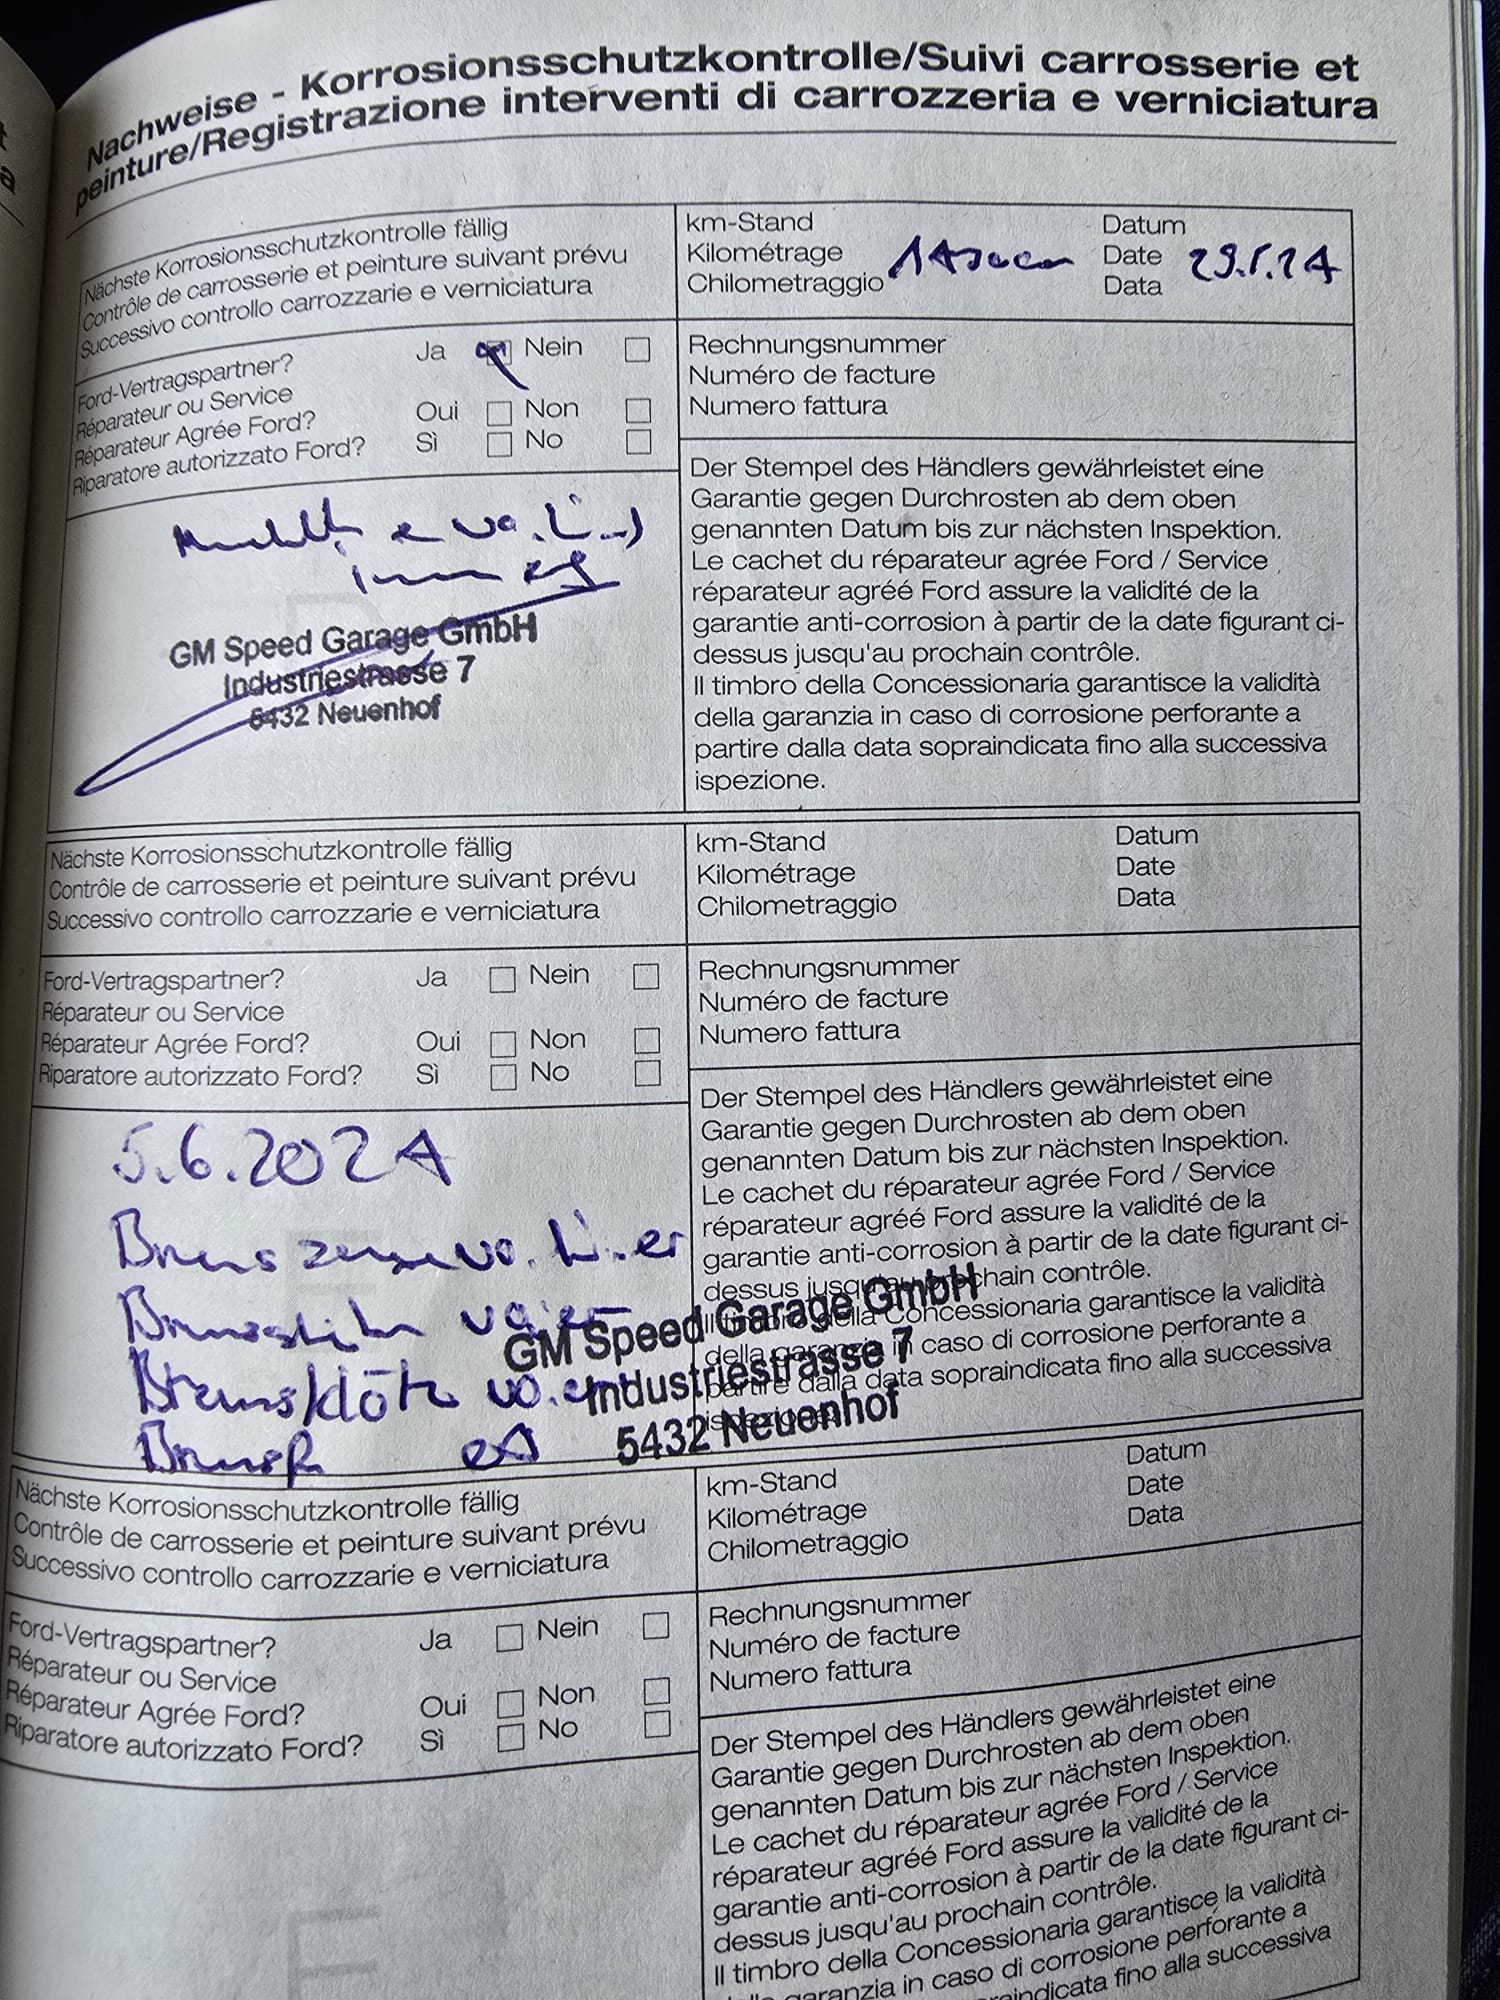 Nachweise - Korrosionsschutzkontrolle/Suivi carrosserie et
peinture/Registrazione interventi di carrozzeria e verniciatura
Nächste Korrosionsschutzkontrolle fällig
Contrôle de carrosserie et peinture suivant prévu
Successivo controllo carrozzarie e verniciatura
km-Stand
Kilométrage
Chilometraggio
Datum
Date
Data
Ford-Vertragspartner? Ja Nein
Réparateur ou Service
Réparateur Agrée Ford? Oui Non
Riparatore autorizzato Ford? Sì No
Rechnungsnummer
Numéro de facture
Numero fattura
GM Speed Garage GmbH
Industriestrasse 7
5432 Neuenhof
Der Stempel des Händlers gewährleistet eine
Garantie gegen Durchrosten ab dem oben
genannten Datum bis zur nächsten Inspektion.
Le cachet du réparateur agrée Ford / Service
réparateur agréé Ford assure la validité de la
garantie anti-corrosion à partir de la date figurant ci-
dessus jusqu'au prochain contrôle.
Il timbro della Concessionaria garantisce la validità
della garanzia in caso di corrosione perforante a
partire dalla data sopraindicata fino alla successiva
ispezione.
Nächste Korrosionsschutzkontrolle fällig
Contrôle de carrosserie et peinture suivant prévu
Successivo controllo carrozzarie e verniciatura
km-Stand
Kilométrage
Chilometraggio
Datum
Date
Data
Ford-Vertragspartner? Ja Nein
Réparateur ou Service
Réparateur Agrée Ford? Oui Non
Riparatore autorizzato Ford? Sì No
Rechnungsnummer
Numéro de facture
Numero fattura
5.6.2024
Bremsklötze
GM Speed Garage GmbH
Industriestrasse 7
5432 Neuenhof
Der Stempel des Händlers gewährleistet eine
Garantie gegen Durchrosten ab dem oben
genannten Datum bis zur nächsten Inspektion.
Le cachet du réparateur agrée Ford / Service
réparateur agréé Ford assure la validité de la
garantie anti-corrosion à partir de la date figurant ci-
dessus jusqu'au prochain contrôle.
Il timbro della Concessionaria garantisce la validità
della garanzia in caso di corrosione perforante a
partire dalla data sopraindicata fino alla successiva
ispezione.
Nächste Korrosionsschutzkontrolle fällig
Contrôle de carrosserie et peinture suivant prévu
Successivo controllo carrozzarie e verniciatura
km-Stand
Kilométrage
Chilometraggio
Datum
Date
Data
Ford-Vertragspartner? Ja Nein
Réparateur ou Service
Réparateur Agrée Ford? Oui Non
Riparatore autorizzato Ford? Sì No
Rechnungsnummer
Numéro de facture
Numero fattura
Der Stempel des Händlers gewährleistet eine
Garantie gegen Durchrosten ab dem oben
genannten Datum bis zur nächsten Inspektion.
Le cachet du réparateur agrée Ford / Service
réparateur agréé Ford assure la validité de la
garantie anti-corrosion à partir de la date figurant ci-
dessus jusqu'au prochain contrôle.
Il timbro della Concessionaria garantisce la validità
garanzia in caso di corrosione perforante a
fino alla successiva